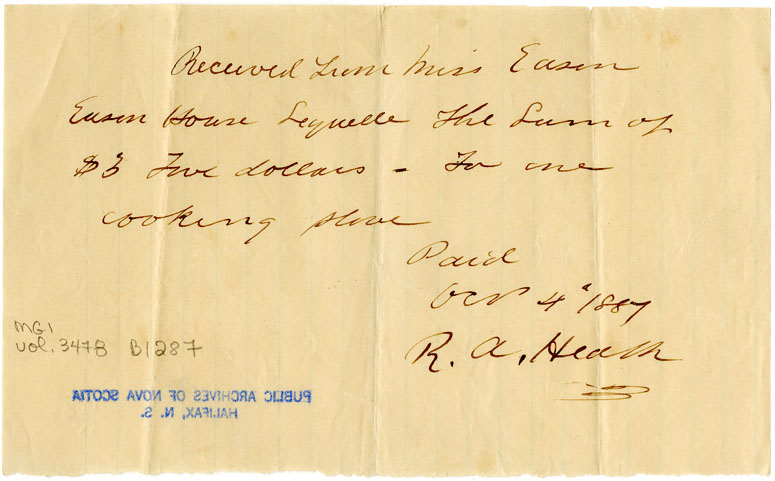 Received from Miss Eason
Eason House Lequelle the Sum of
$5 Five dollars - For one
cooking stove
Paid
Oct 4" 1887
R. A. Heath
MG1
vol. 3478 B1287
PUBLIC ARCHIVES OF NOVA SCOTIA
HALIFAX, N. S.